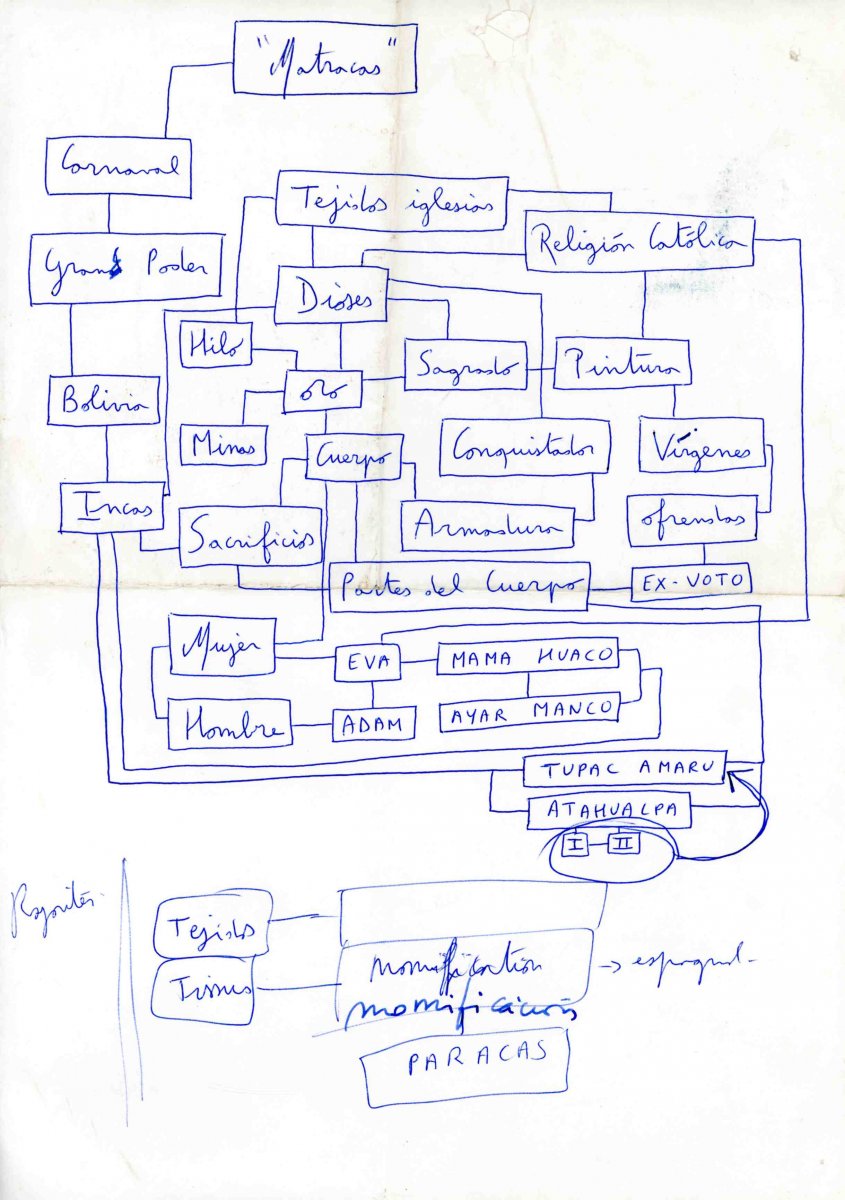 "Matracas"
Carnaval
Tejidos iglesias
Religión Católica
Gran Poder
Dioses
Hilo
Sagrado
Pintura
oro
Bolivia
Minas
Cuerpo
Conquistador
Vírgenes
Incas
Sacrificios
Armadura
ofrendas
Partes del Cuerpo
EX-VOTO
Mujer
EVA
MAMA HUACO
Hombre
ADAM
AYAR MANCO
TUPAC AMARU
ATAHUALPA
I II
Rajouter
Tejidos
Tissus
Momification → espagnol
momificación
PARACAS